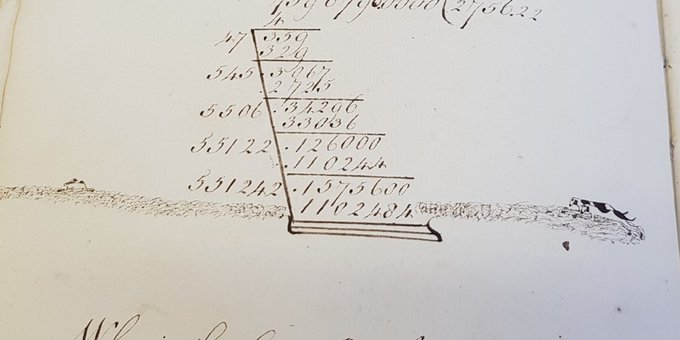 (2756.22
4
47 359
329
545 .3067
.2725
5506 .34296
33036
55122 .126000
.110244
551242 .1575600
1102484